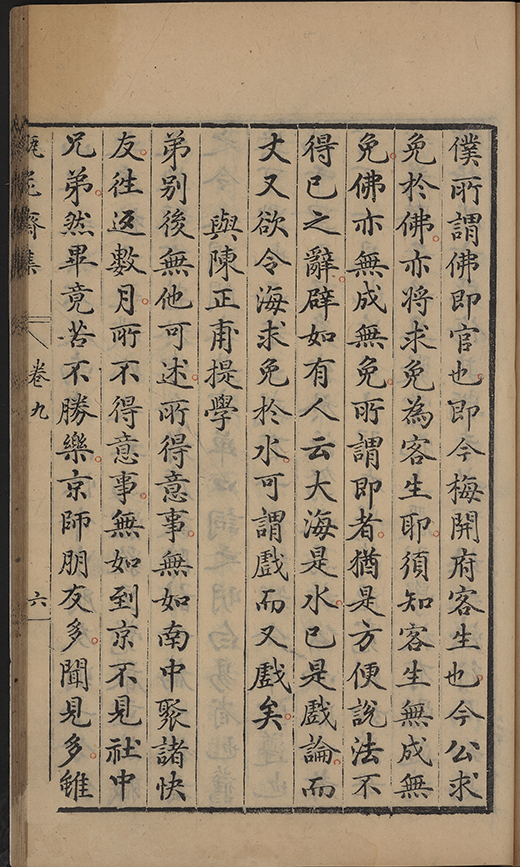 僕所謂佛即官也即今梅開府客生也今公求
免於佛亦將求免為客生耶須知客生無成無
免佛亦無成無免所謂即者猶是方便說法不
得已之辭辟如有人云大海是水已是戲論而
丈又欲令海求免於水可謂戲而又戲矣
與陳正甫提學
弟別後無他可述所得意事無如南中聚諸快
友徃返數月所不得意事無如到京不見社中
兄弟然畢竟苦不勝樂京師朋友多聞見多雖
卷九
六